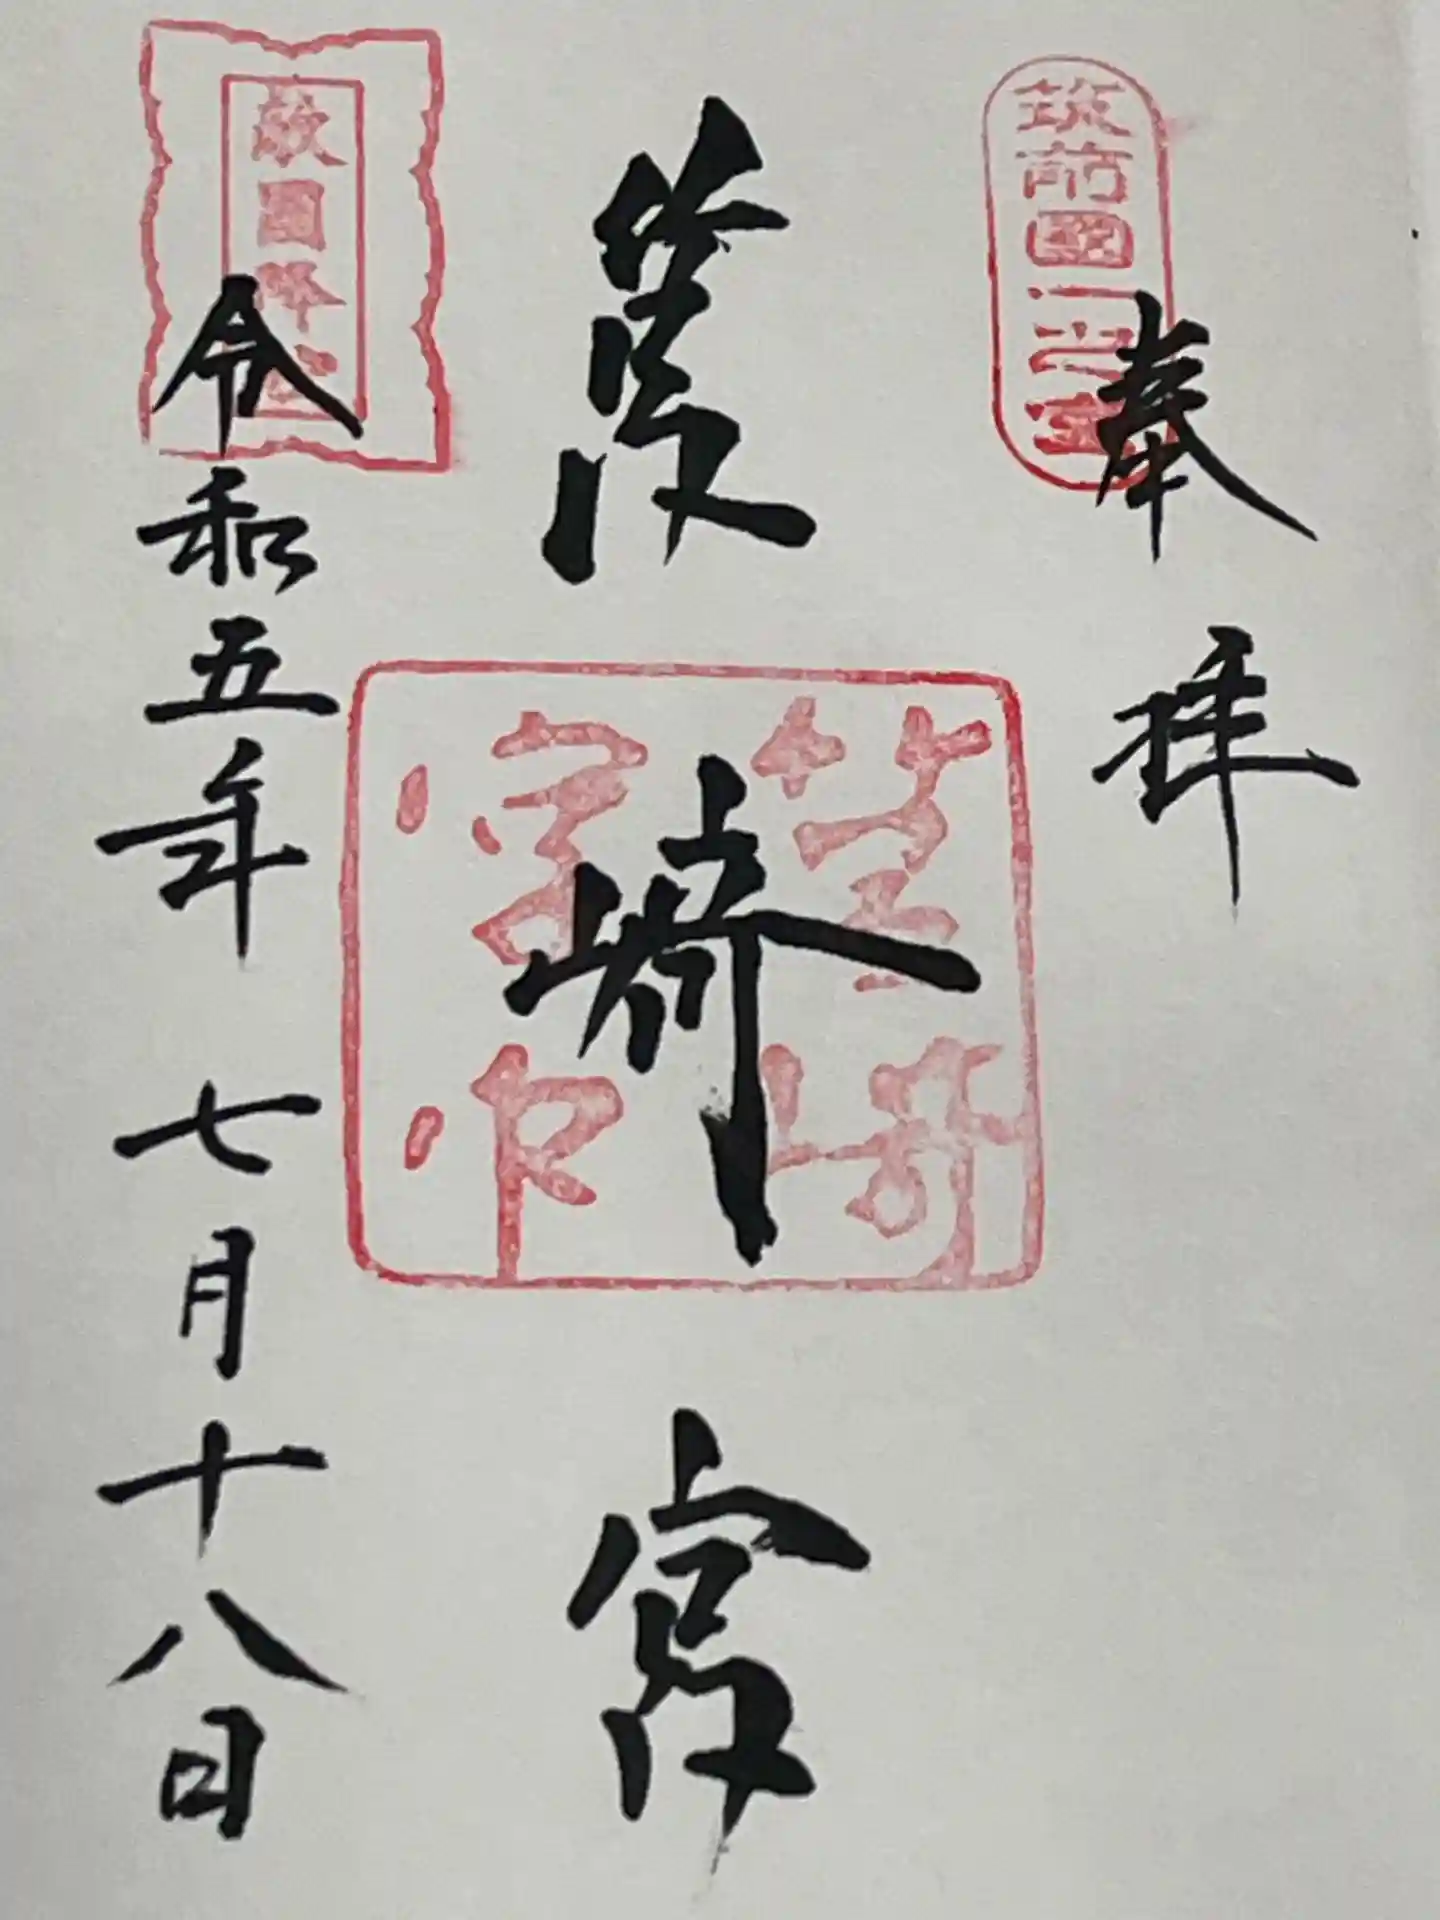 筑前國一之宮
奉拝
筥崎宮
筥崎宮印
敵國降伏
令和五年 七月十八日